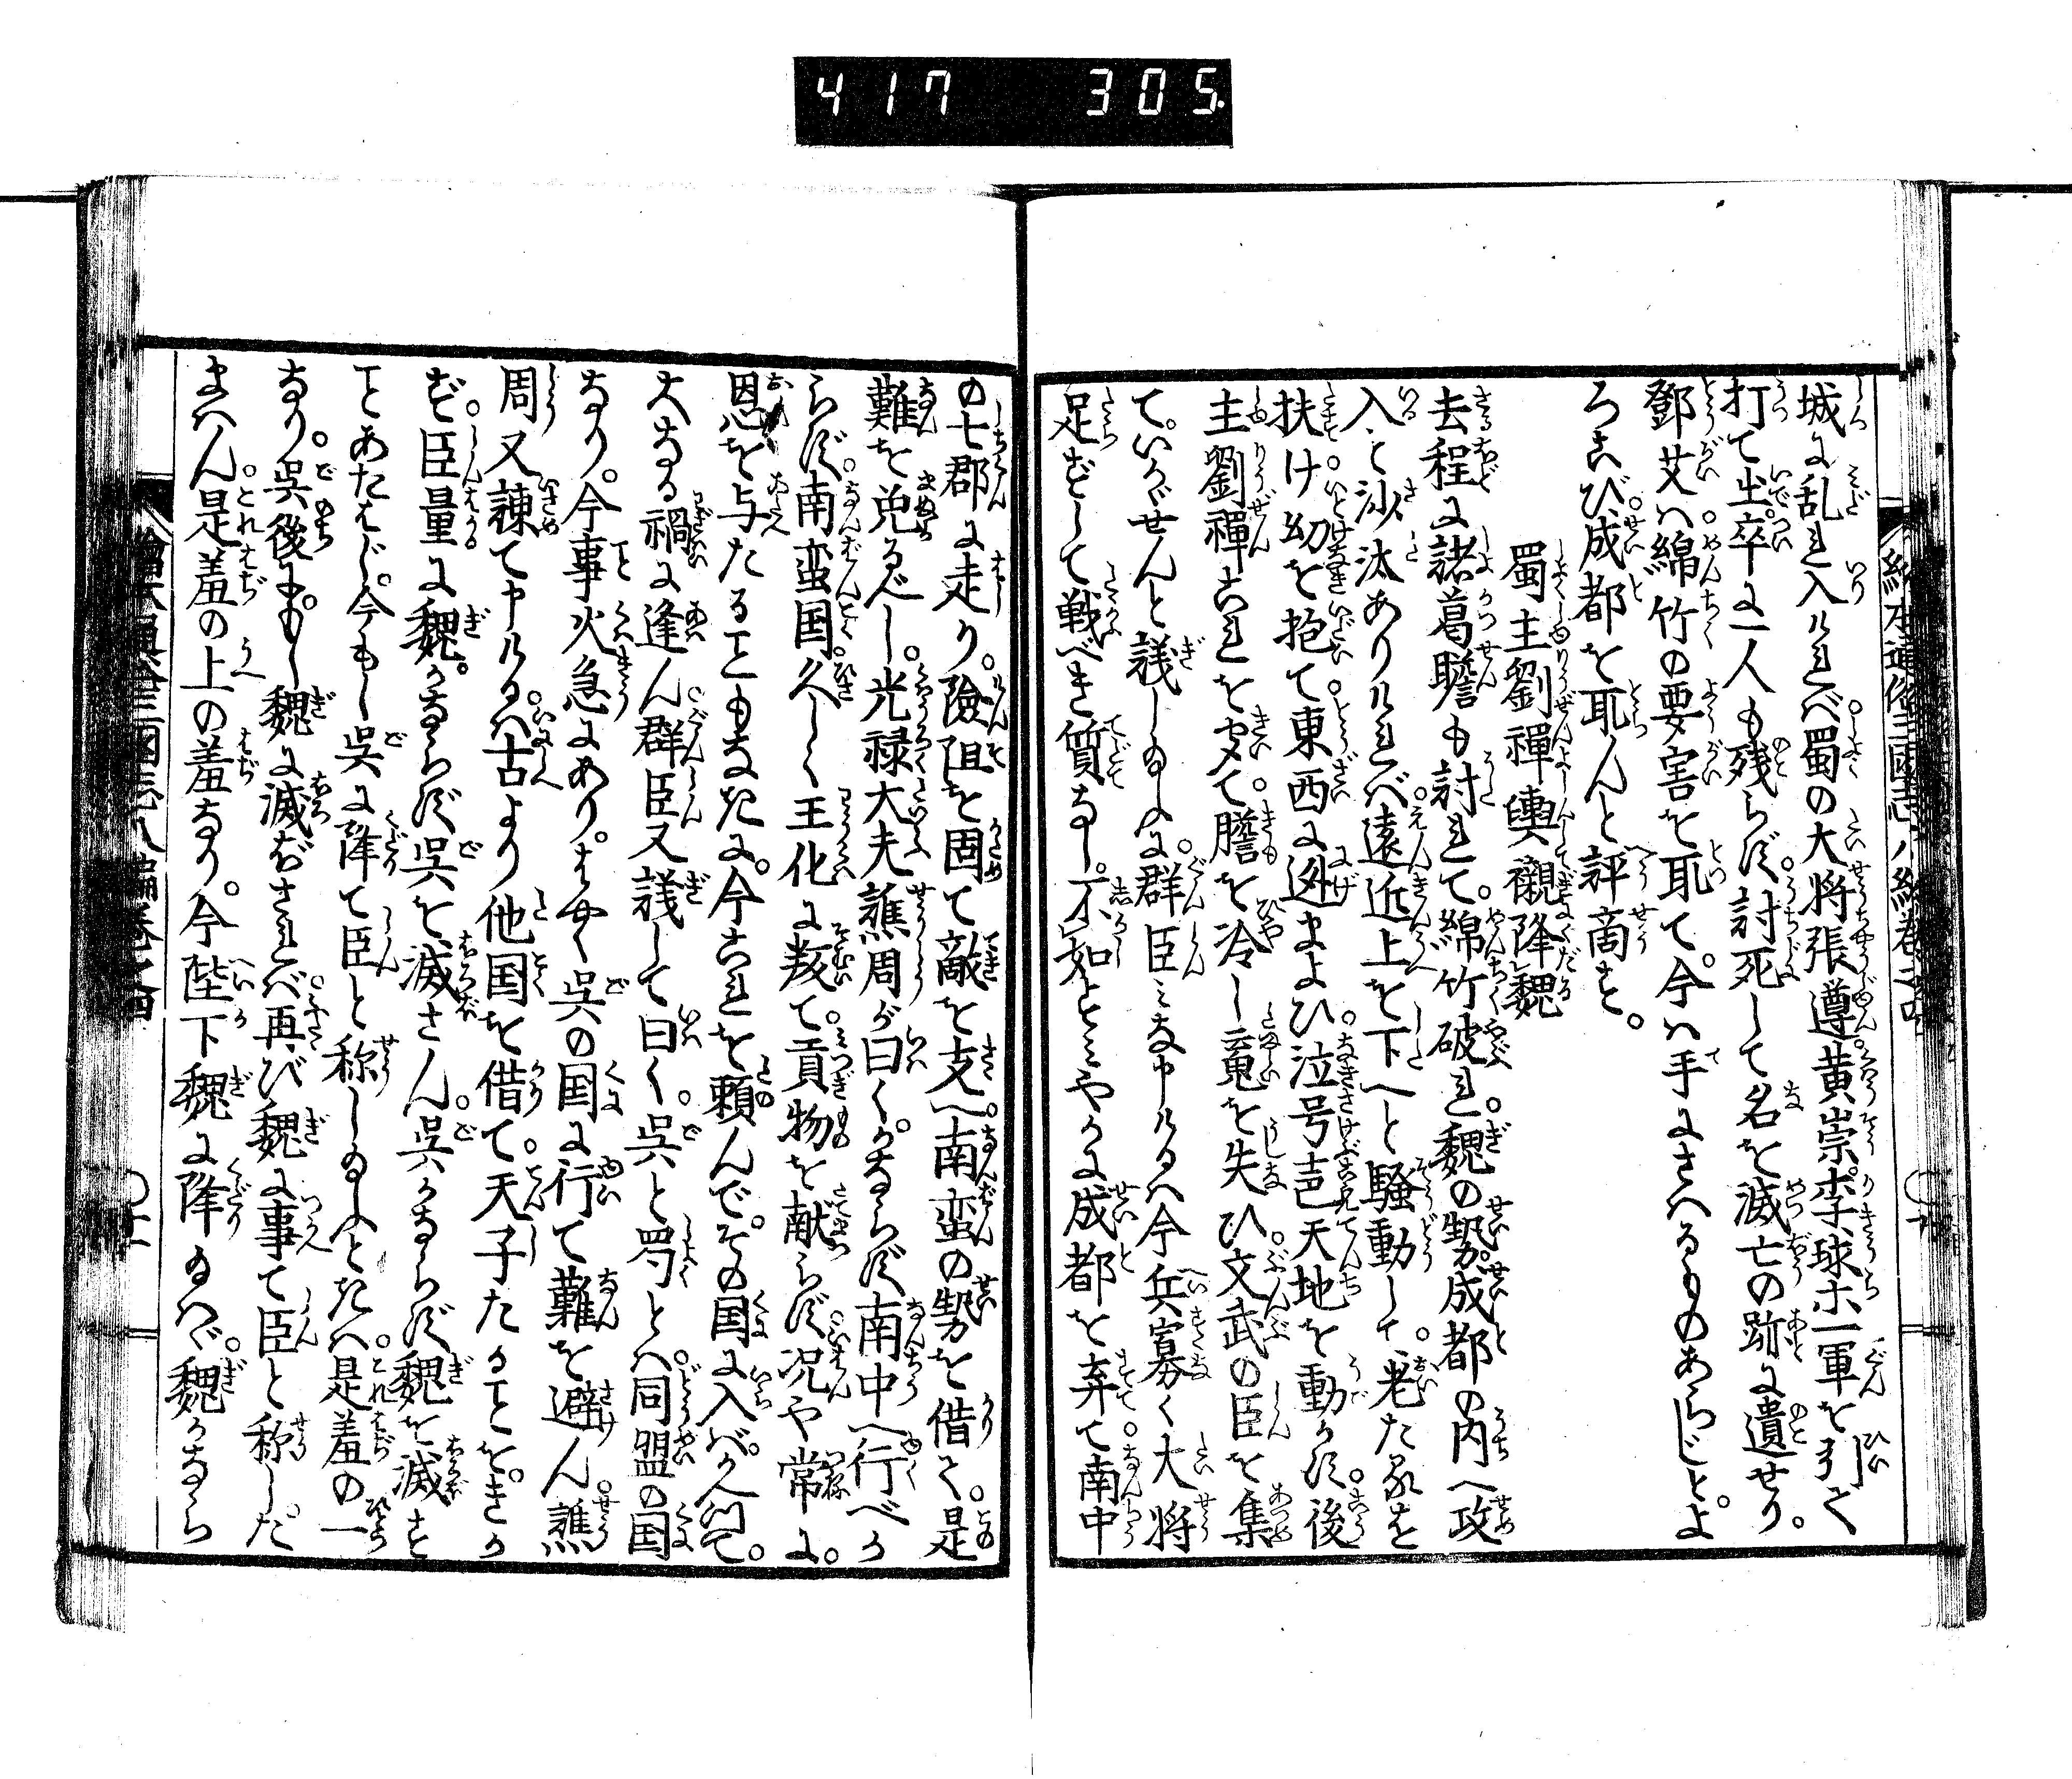 417 305.
繪本通俗三國志八編巻之四
城に乱れ入りければ。蜀の大将張遵。黄崇。李球等一軍を引て
打て出。卒に一人も残らず。討死して名を滅亡の跡に遺せり。
鄧艾は綿竹の要害を取て。今は手にさへるものあらじとよ
ろこび。成都を取んと評商す。
蜀主劉禪輿櫬降魏
去程に諸葛瞻も討れて。綿竹破れ。魏の勢成都の内へ攻
入と沙汰ありければ。遠近上を下へと騒動して。老たるを
扶け幼を抱て。東西に迯まよひ。泣号声天地を動かす。後
主劉禪これを聞て。膽を冷し魂を失ひ。文武の臣を集
て。いかゞせんと議し給ふに。群臣みな申けるは今兵寡く大将
足ずして戦べき質なし。不如とみやかに成都を弃て。南中
の七郡に走り。険阻を固て敵を支へ。南蛮の勢を借て。是
難を免るべし。光禄大夫譙周が曰く。かならず南中へ行べか
らず。南蛮国。久しく王化に叛て。貢物を献らず。况や常に。
恩を与たることもなきに。今これを頼んで。その国に入ば。かへつて。
大なる禍に逢ん。群臣又議して曰く。呉と蜀とは。同盟の国
なり。今事火急にあり。はやく呉の国に行て難を避ん。譙
周又諫て申けるは。古より他国を借て。天子たることをきか
ず。臣量に魏。かならず呉を滅さん。呉かならず魏を滅す
ことあたはじ。今もし呉に降て臣と称し給ふときは。是羞の一
なり。呉後にもし魏に滅ぼされば。再び魏に事て臣と称した
まはん。是羞の上の羞なり。今陛下魏に降給はゞ。魏かなら
繪本通俗三國志八編巻之四